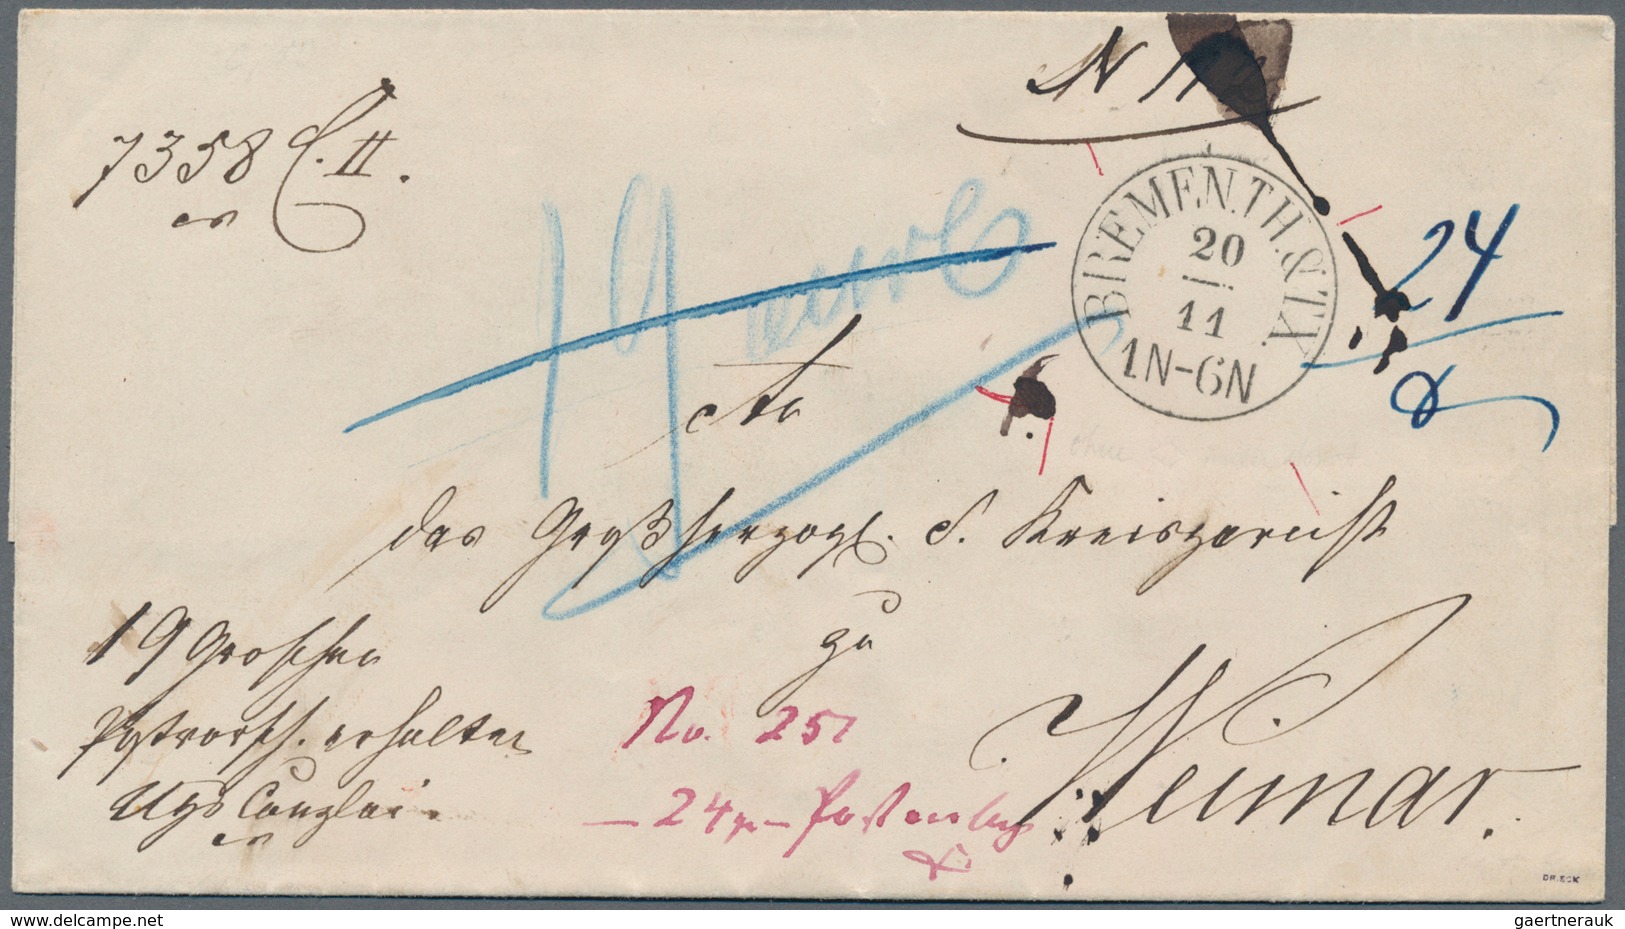 N
7358 C. II.
BREMEN.TH.&.TX.
20
11
1N-6N
24
19
An
das Großherzogl. S. Kreisgericht
zu
Weimar.
19 Groschen
Postvorsch. erhalten
Canzlei.
No. 251
— 24 gr —
DR.ECK
www.delcampe.net
gaertnerauk